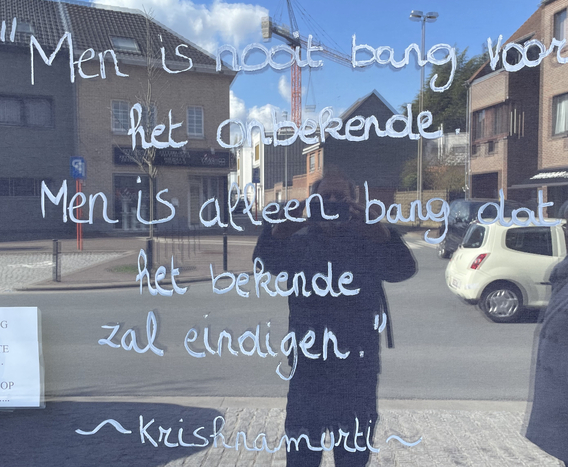 "Men is nooit bang voor
het onbekende
Men is alleen bang dat
het bekende
zal eindigen."
~Krishnamurti~
G
TE
OP